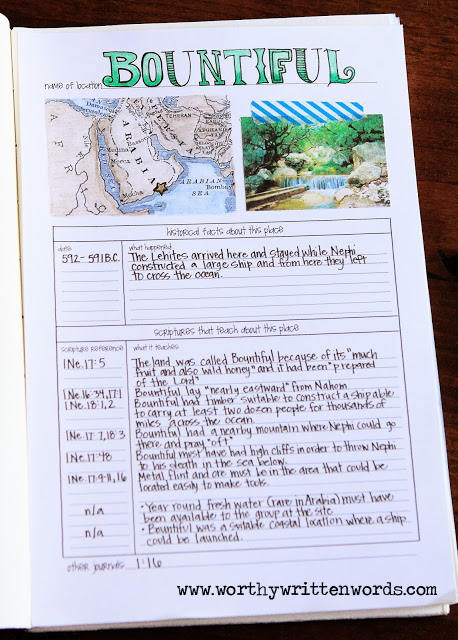 name of location: BOUNTIFUL
TEHERAN
AFGHANISTAN
PERSIA
Medina
Mecca
ARABIA
Mocha
ARABIAN
SEA
Bombay
historical facts about this place
date
what happened
592-591 B.C.
The Lehites arrived here and stayed while Nephi
constructed a large ship and from here they left
to cross the ocean.
scriptures that teach about this place
scripture reference
what it teaches
1 Ne. 17:5
The land was called Bountiful because of its "much
fruit and also wild honey" and it had been "prepared
of the Lord"
1 Ne. 16:34, 17:1
Bountiful lay "nearly eastward" from Nahom
1 Ne. 18:1, 2
Bountiful had timber suitable to construct a ship able
to carry at least two dozen people for thousands of
miles across the ocean.
1 Ne. 17:7, 18:3
Bountiful had a nearby mountain where Nephi could go
there and pray "oft"
1 Ne. 17:48
Bountiful must have had high cliffs in order to throw Nephi
to his death in the sea below.
1 Ne. 17:9-11, 16
Metal, flint and ore must be in the area that could be
located easily to make tools.
n/a
• Year round fresh water (rare in Arabia) must have
been available to the group at the site
n/a
• Bountiful was a suitable coastal location where a ship
could be launched.
other journals: 1:16
www.worthywrittenwords.com